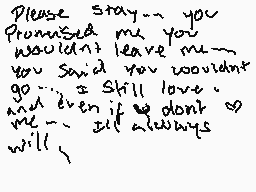 Please stay... you
Promised me you
wouldnt leave me...
you said you wouldnt
go... I still love.
and even if you dont ♡
me... Ill always
will,